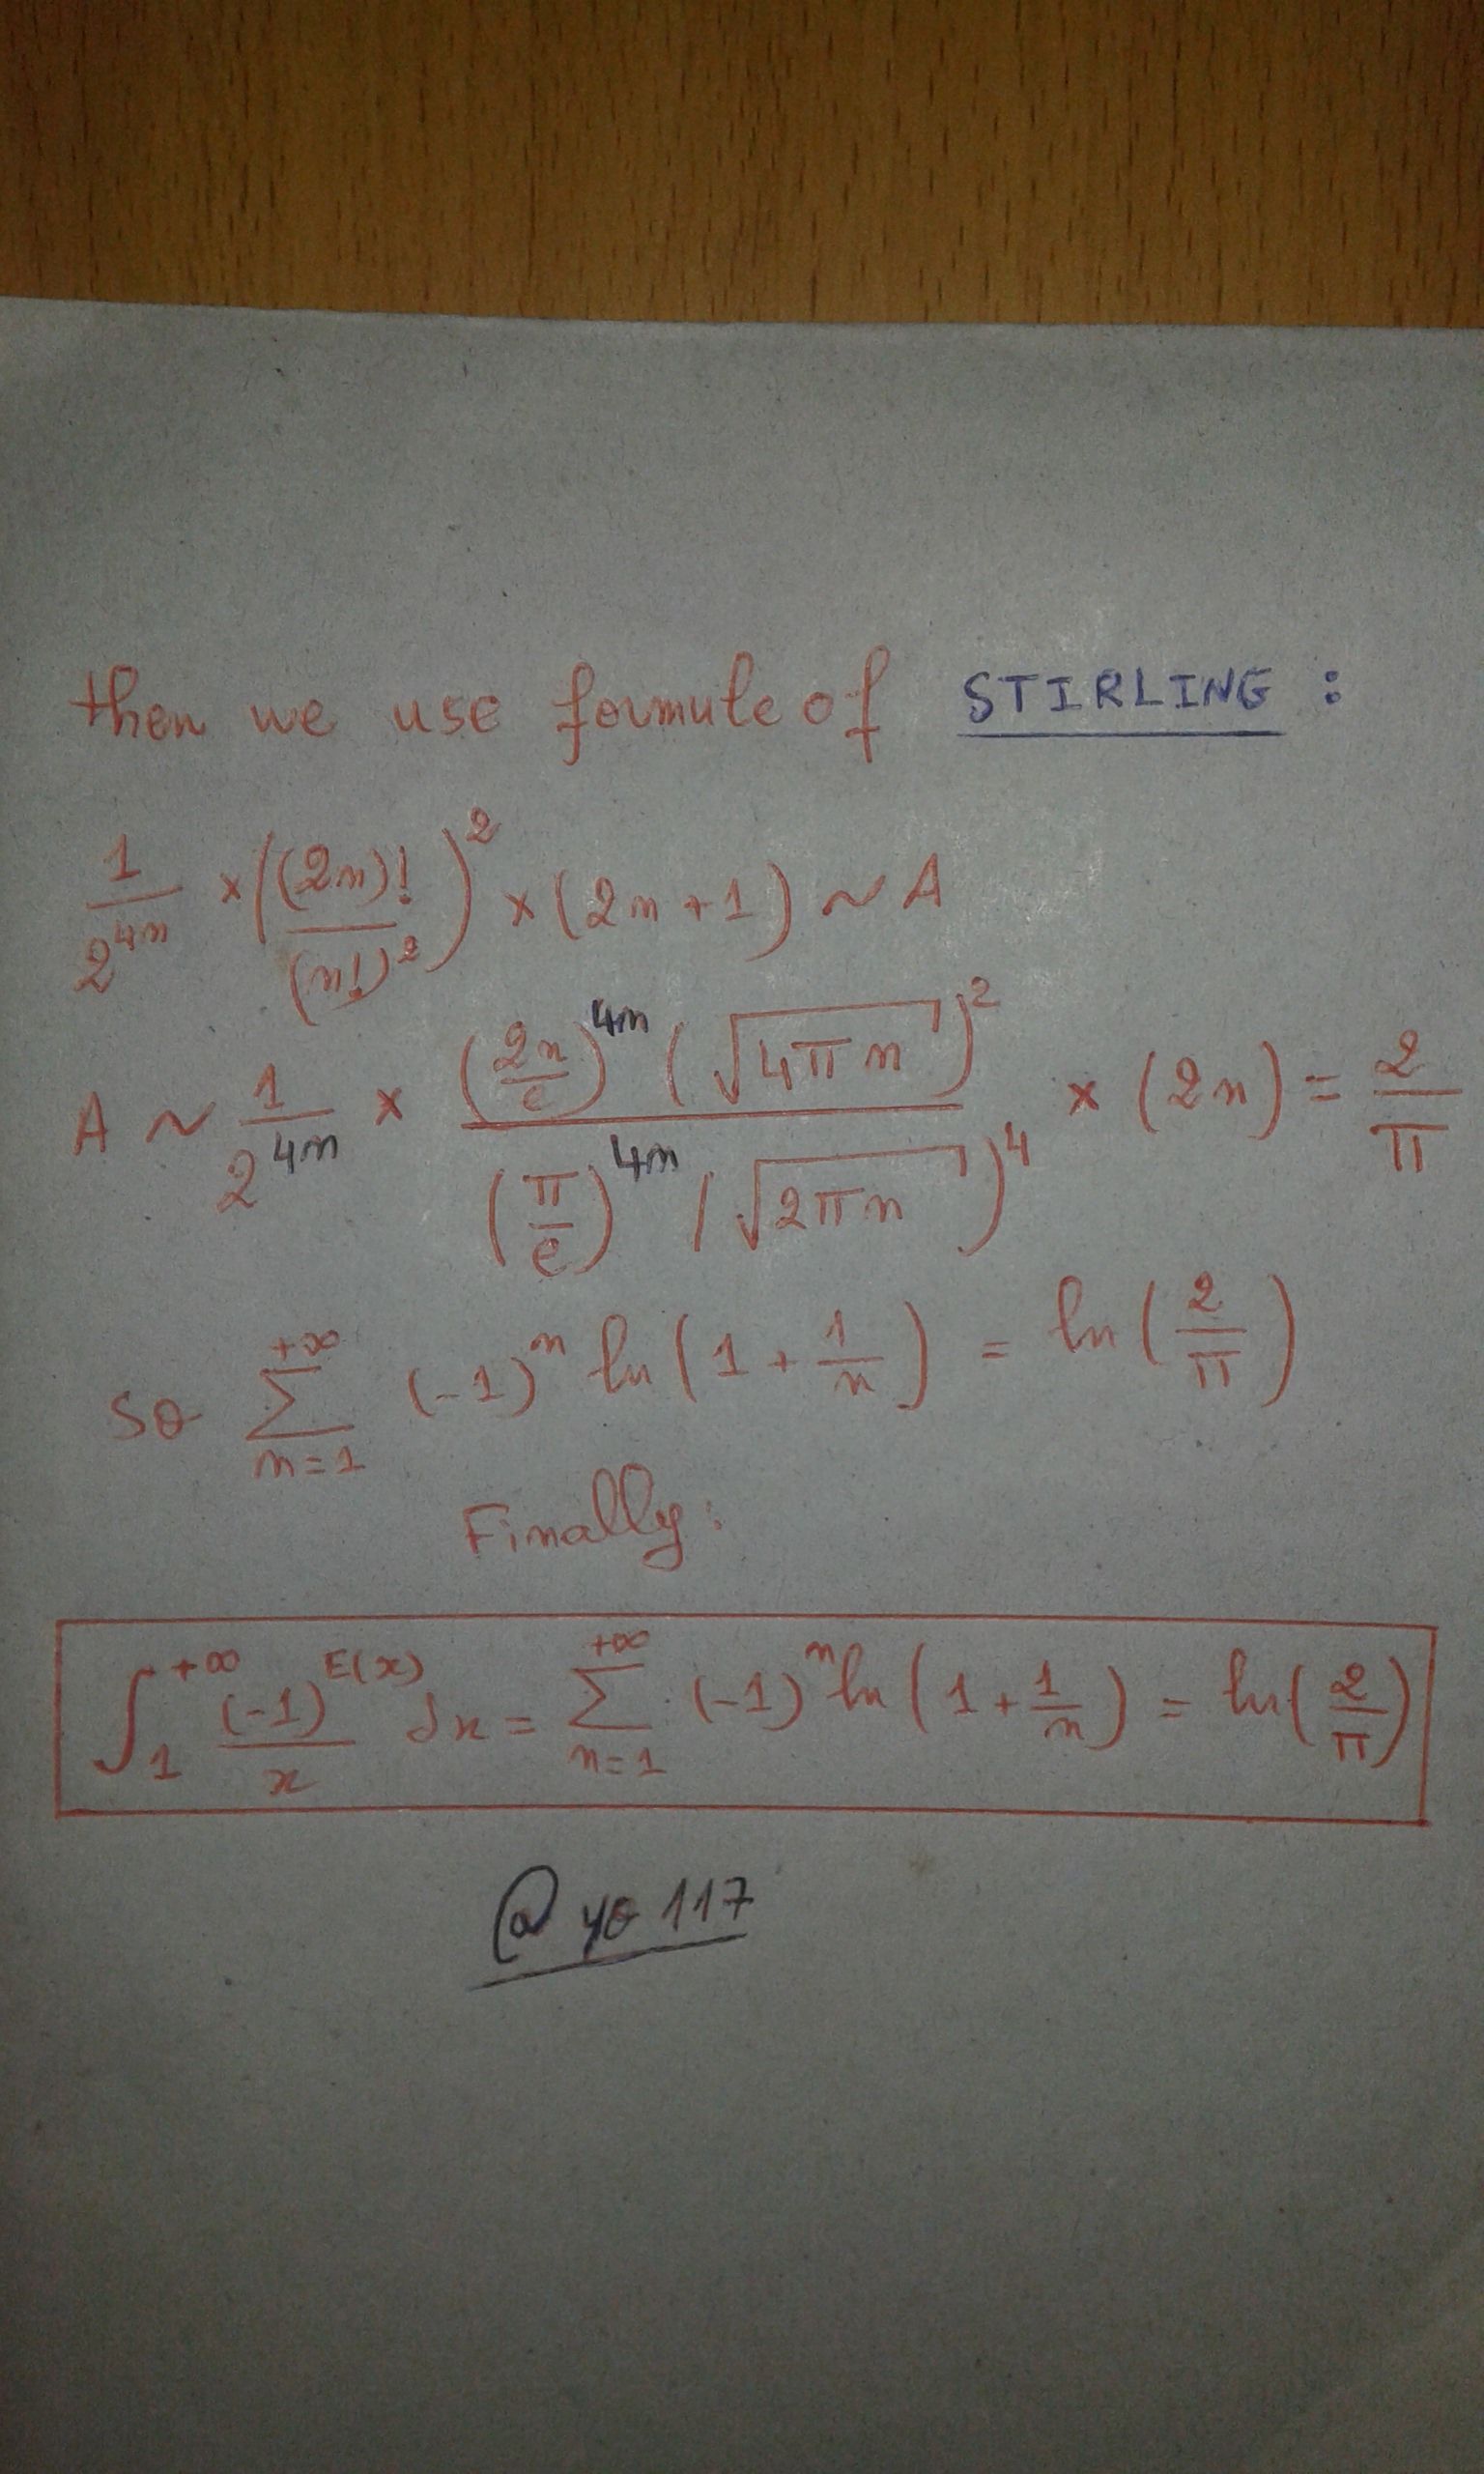 then we use formule of STIRLING :
1/2^{4n} × ((2n)!/(n!)^2)^2 × (2n+1) ~ A
A ~ 1/2^{4n} × (2n/e)^{4n} (√4πn)^2 / (π/e)^{4n} (√2πn)^4 × (2n) = 2/π
So ∑_{n=1}^{+∞} (-1)^n ln(1 + 1/n) = ln(2/π)
Finally:
∫_1^{+∞} (-1)^{E(x)}/x dx = ∑_{n=1}^{+∞} (-1)^n ln(1 + 1/n) = ln(2/π)
@ yo 117